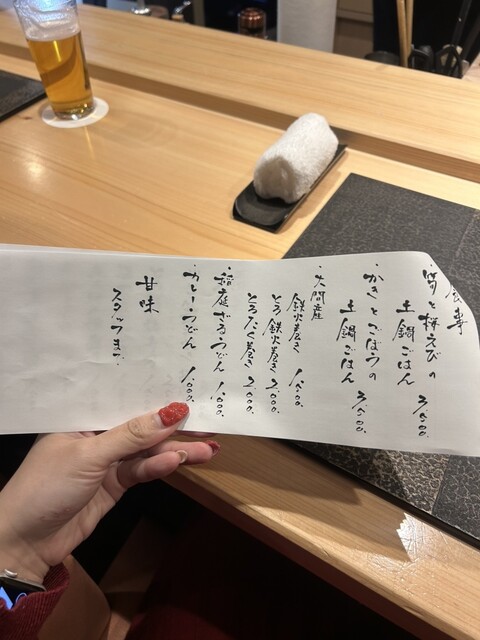 食事
・筍と桜えびの
土鍋ごはん 3,800.
・かきとごぼうの
土鍋ごはん 3,800.
・大間産
鉄火巻き 1,800.
とろ鉄火巻き 2,800.
とろたく巻き 2,800.
・稲庭ざるうどん 1,800.
・カレーうどん 1,800.
甘味
スタッフまで